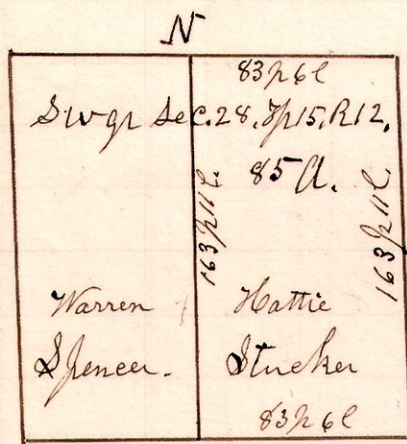 N
83 p 6 l
S w qr Sec. 28. Tp 15. R 12.
85 A.
163 p 11 l
163 p 11 l
Warren Hattie
Spencer. Stucker
83 p 6 l